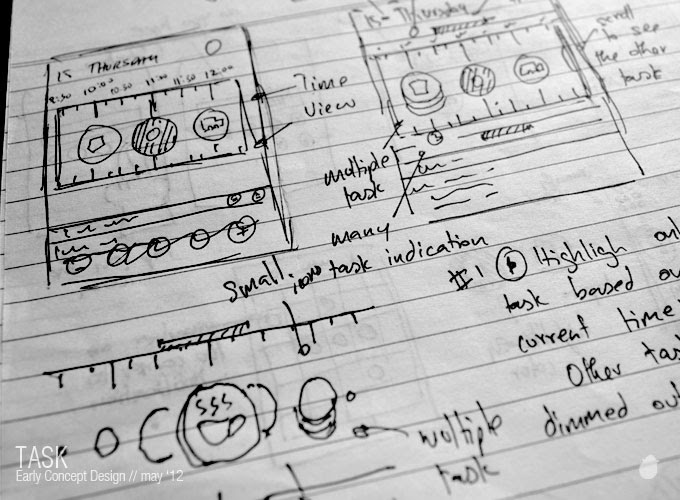 15 THURSDAY
9:30 10:00 10:30 11:00 11:30 12:00
Time
View
15 - Thursday
scroll
to see
the other
task
multiple
task
many
Small icon task indication
#1 Highligh
task based
current time
Other
dimmed
multiple
task
TASK
Early Concept Design // may '12